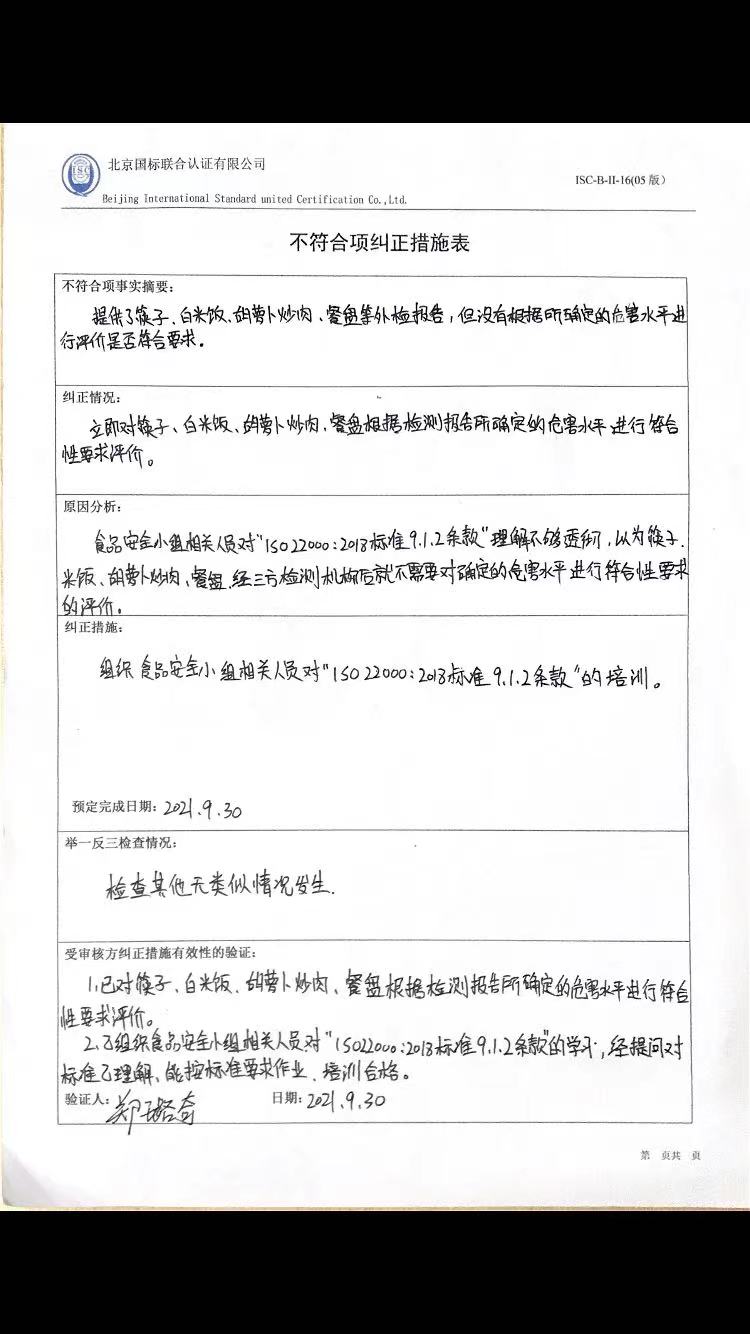 北京国标联合认证有限公司
ISC-B-II-16(05 版)
Beijing International Standard united Certification Co.,Ltd.
不符合项纠正措施表
不符合项事实摘要:
提供了筷子、白米饭、胡萝卜炒肉、餐盘等外检报告,但没有根据所确定的危害水平进
行评价是否符合要求。
纠正情况:
立即对筷子、白米饭、胡萝卜炒肉、餐盘根据检测报告所确定的危害水平进行符合
性要求评价。
原因分析:
食品安全小组相关人员对“ISO22000:2018标准9.1.2条款”理解不够透彻,以为筷子、
米饭、胡萝卜炒肉、餐盘经三方检测机构后就不需要对确定的危害水平进行符合性要求
的评价。
纠正措施:
组织食品安全小组相关人员对“ISO22000:2018标准9.1.2条款”的培训。
预定完成日期: 2021.9.30
举一反三检查情况:
检查其他无类似情况发生.
受审核方纠正措施有效性的验证:
1.已对筷子、白米饭、胡萝卜炒肉、餐盘根据检测报告所确定的危害水平进行符合
性要求评价。
2.已组织食品安全小组相关人员对“ISO22000:2018标准9.1.2条款”的学习,经提问对
标准已理解、能按标准要求作业、培训合格。
验证人: 日期: 2021.9.30
第 页共 页